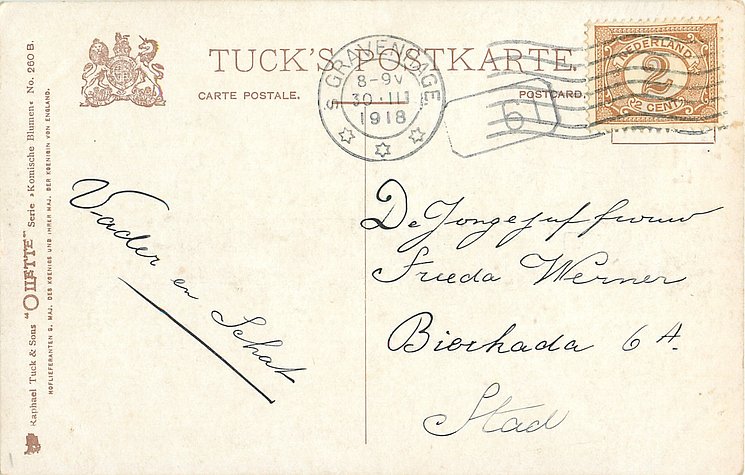 TUCK'S POSTKARTE.
CARTE POSTALE.
POSTCARD.
'S GRAVENHAGE
8-9V
30 III
1918
6
NEDERLAND
2
2 CENT 2
Raphael Tuck & Sons "OILETTE" Serie »Komische Blumen« No. 260 B.
HOFLIEFERANTEN S. MAJ. DES KOENIGS UND IHRER MAJ. DER KOENIGIN VON ENGLAND.
Vader en Schat
De Jongejuffrouw
Frieda Werner
Bierkada 6 A.
Stad